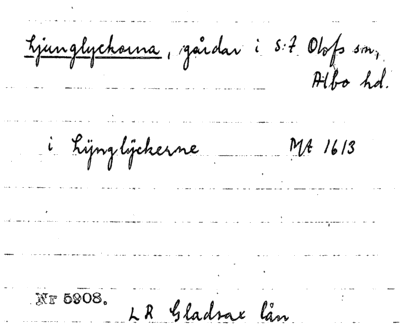 Ljunglyckorna, gårdar i S:t Olofs sn,
Albo hd.
i Lÿnglÿckerne MA 1613
Nr 5908.
LR Gladsax län